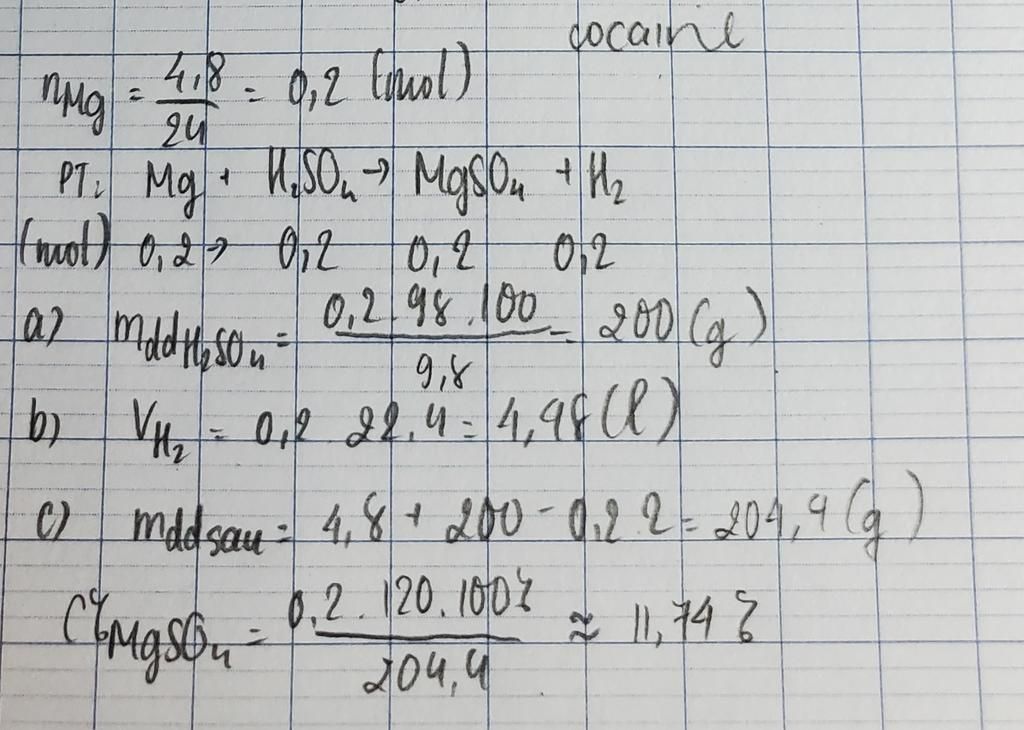 cocaine
nMg = 4,8/24 = 0,2 (mol)
PT: Mg + H₂SO₄ → MgSO₄ + H₂
(mol) 0,2 → 0,2 0,2 0,2
a) mddH₂SO₄ = 0,2.98.100/9,8 = 200 (g)
b) VH₂ = 0,2 22,4 = 4,48 (l)
c) mddsau = 4,8 + 200 - 0,2.2 = 204,4 (g)
C%MgSO₄ = 0,2.120.100%/204,4 ≈ 11,74%